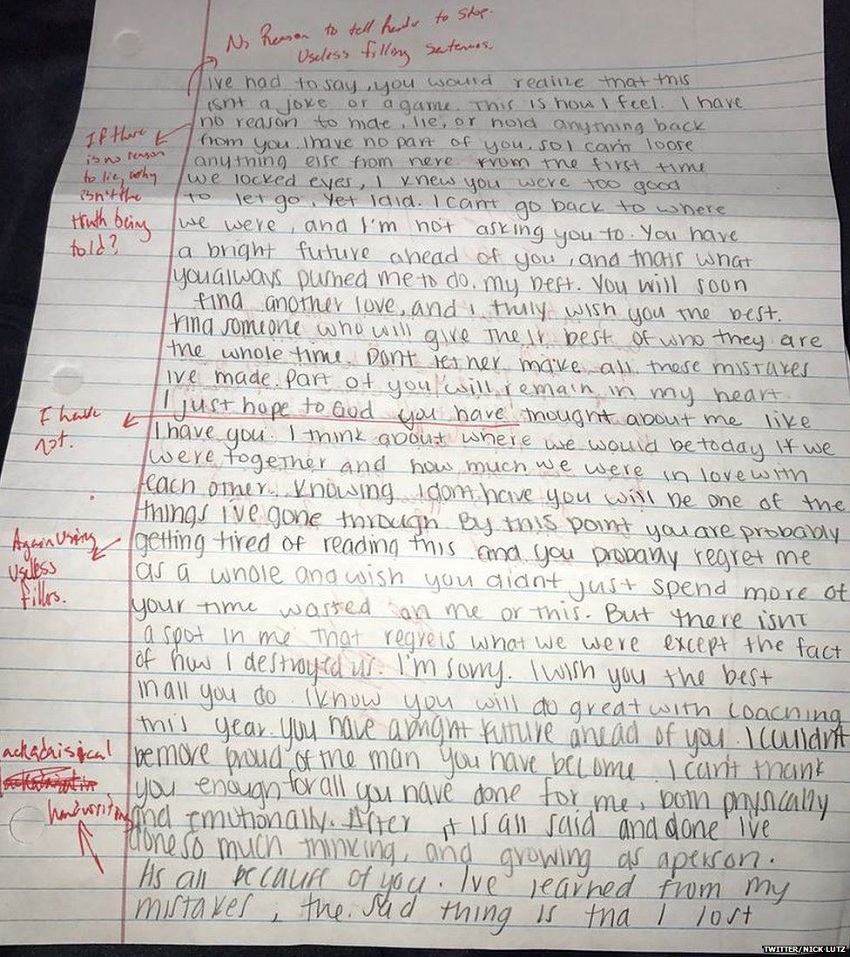 No Reason to tell hard to stop.
Useless filling sentences.
ive had to say, you would realize that this
isnt a joke or a game. This is how I feel. I have
no reason to hide, lie, or hold anything back
from you. I have no part of you, so I can't loose
anything else from here. From the first time
we locked eyes, I knew you were too good
to let go, yet I did. I cant go back to where
we were, and I'm not asking you to. You have
a bright future ahead of you, and thats what
you always pushed me to do, my best. You will soon
find another love, and I truly wish you the best.
Find someone who will give their best of who they are
the whole time. Dont let her make all these mistakes
ive made. Part of you will remain in my heart.
I just hope to God you have thought about me like
I have you. I think about where we would be today if we
were together and how much we were in love with
each other. Knowing I dont have you will be one of the
things I've gone through. By this point you are probably
getting tired of reading this and you probably regret me
as a whole and wish you didnt just spend more of
your time wasted on me or this. But there isnt
a spot in me that regrets what we were except the fact
of how I destroyed us. I'm sorry. I wish you the best
in all you do. I know you will do great with coaching
this year. You have a bright future ahead of you. I couldn't
be more proud of the man you have become. I can't thank
you enough for all you have done for me, both physically
and emotionally. After it is all said and done Ive
done so much thinking, and growing as a person.
Its all because of you. Ive learned from my
mistakes, the sad thing is tha I lost
If there
is no reason
to lie, why
isn't the
truth being
told?
I have
not.
Again using
useless
fillers.
ackadaisical
handwriting
TWITTER/NICK LUTZ